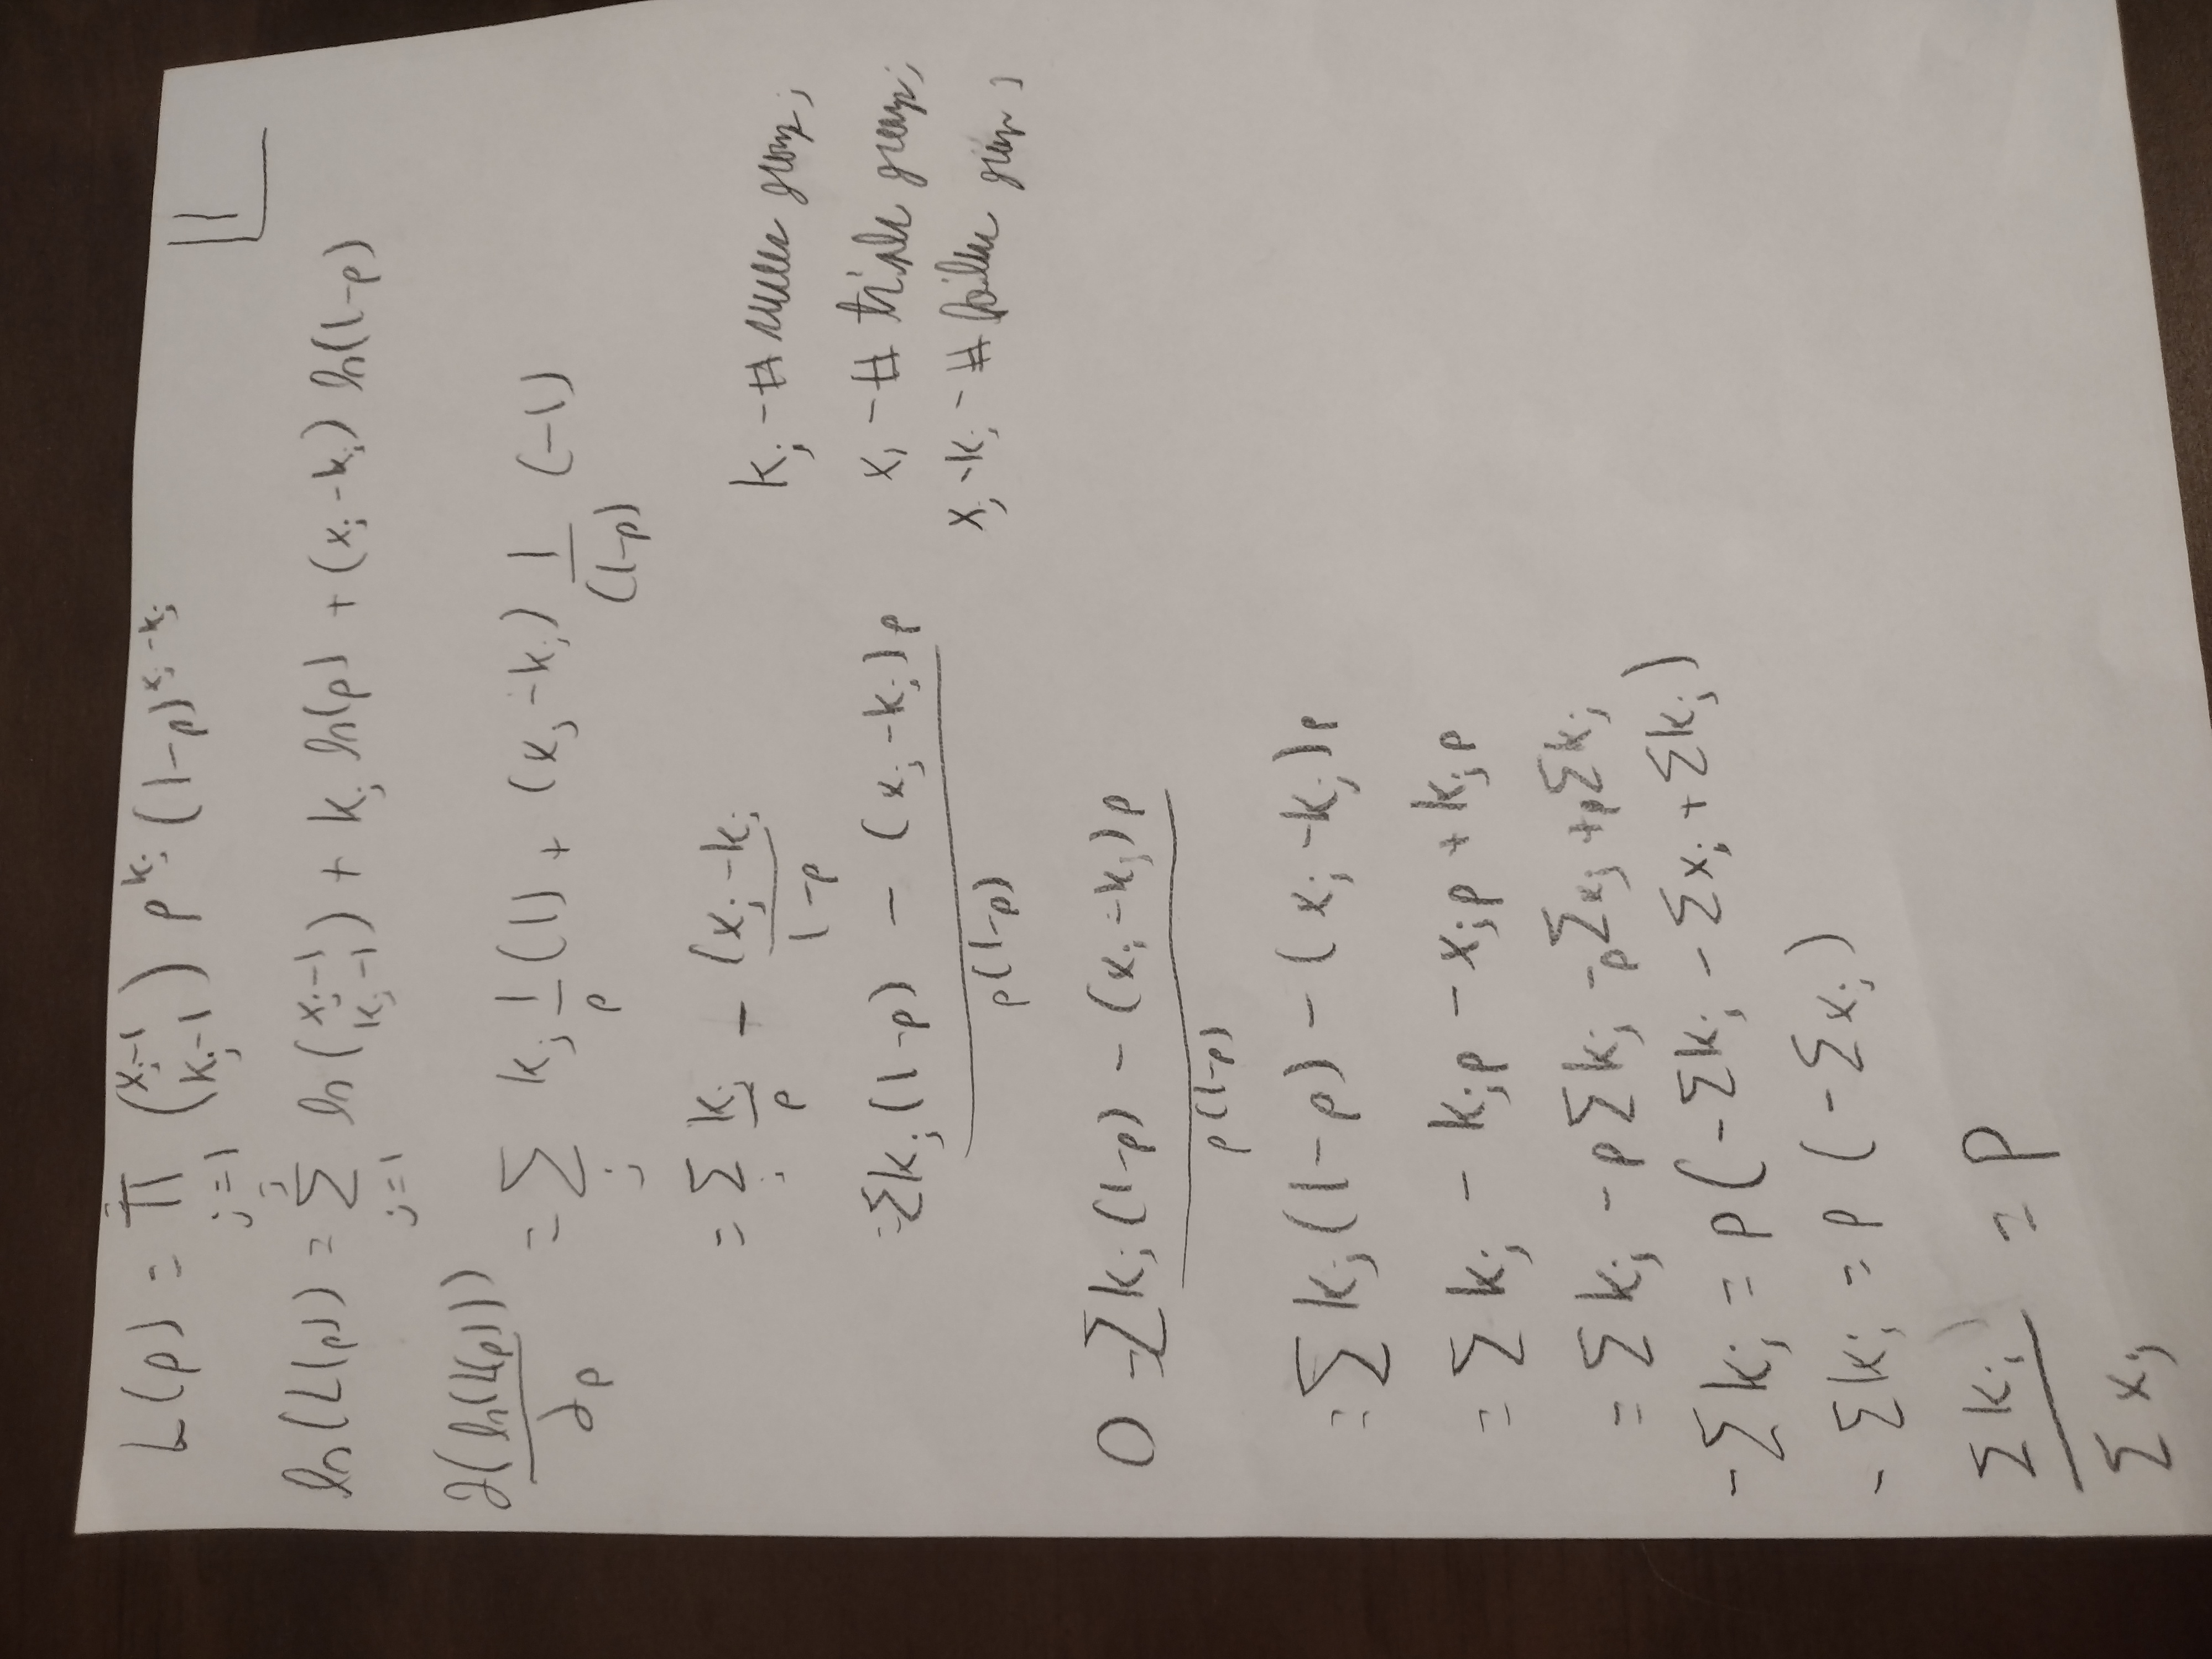 L(p) = ∏_{j=1}^{J} (x_j-1 choose k_j-1) p^{k_j} (1-p)^{x_j-k_j}
1
ln(L(p)) = ∑_{j=1}^{J} ln(x_j-1 choose k_j-1) + k_j ln(p) + (x_j-k_j) ln(1-p)
∂(ln(L(p)))/∂p = ∑_j k_j 1/p (1) + (x_j-k_j) 1/(1-p) (-1)
= ∑_j k_j/p - (x_j-k_j/1-p
k_j - # success group j
= ∑ k_j(1-p) - (x_j-k_j)p / p(1-p)
x_j - # trials group j
x_j-k_j - # failure group j
0 = ∑ k_j(1-p) - (x_j-k_j)p / p(1-p)
= ∑ k_j(1-p) - (x_j-k_j)p
= ∑ k_j - k_j p - x_j p + k_j p
= ∑ k_j - p∑k_j - p∑x_j + p∑k_j
-∑k_j = p(-∑k_j - ∑x_j + ∑k_j)
-∑k_j = p(-∑x_j)
∑k_j/∑x_j = p